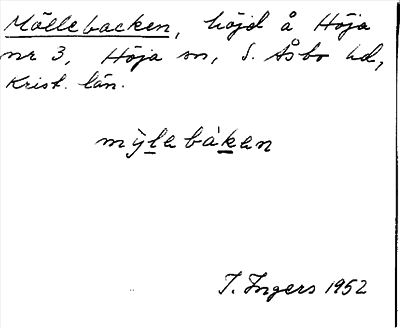 Möllebacken, höjd å Höja
nr 3, Höja sn, S. Åsbo hd,
Krist. län.
mỳlebàken
I. Ingers 1952